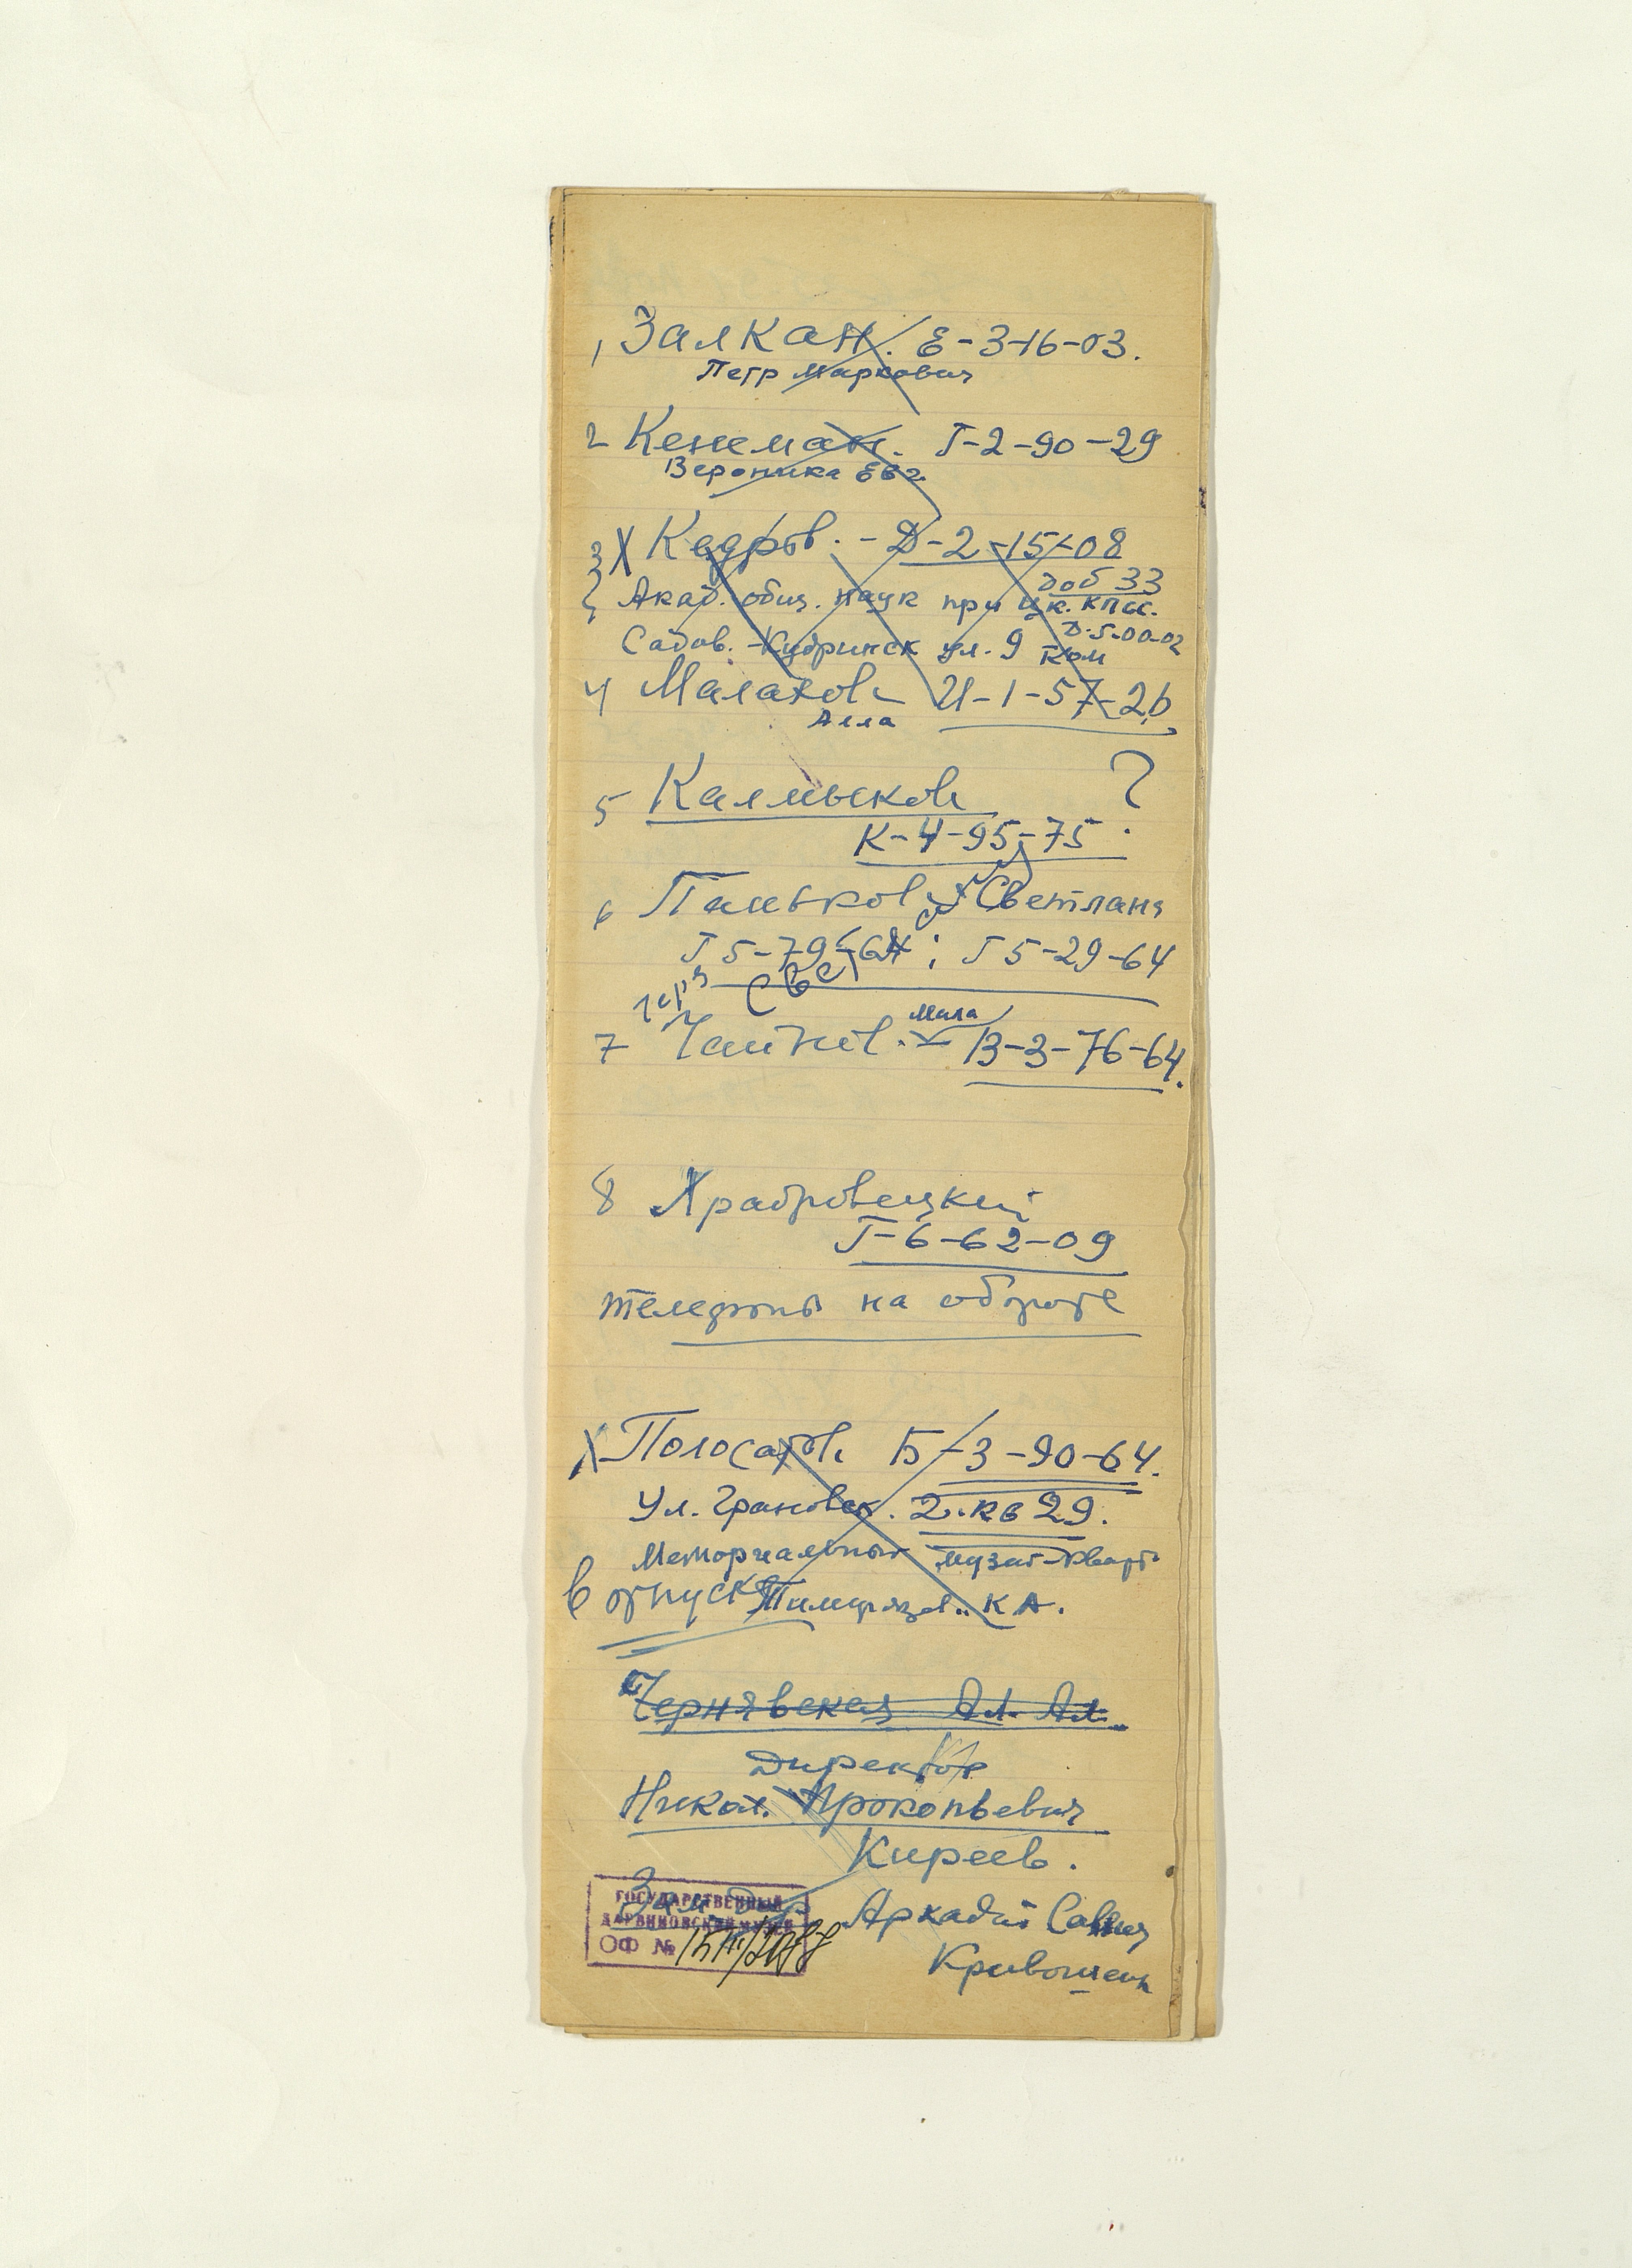 1, Залкан. Е-3-16-03.
Петр Маркович
2 Кенеман. Г-2-90-29
Вероника Евг.
3 X Кедров. - Д-2-15-08
доб 33
Акад. общ. наук при ЦК. КПСС.
Д-5-00-02
Садов. - Кудринск ул. 9 Ком
4 Малахов И-1-57-26
Алла
5 Калмыков ?
К-4-95-75
6 Паньков Светлана
Г 5-79-64; Г 5-29-64
7 В-3-76-64.
8 Храбровицкий
Г-6-62-09
телефоны на обороте
X Полосатов Б-3-90-64.
Ул. Грановск. 2. кв 29.
Мемориальный музей-кварт
в отпуске Тимирязев. К А.
Чернявская Ал. Ал.
Директор
Никол. Прокопьевич
Киреев.
Зам. Дир Аркадий Саввич
Кривошеин
ГОСУДАРСТВЕННЫЙ
ДАРВИНОВСКИЙ МУЗЕЙ
ОФ №